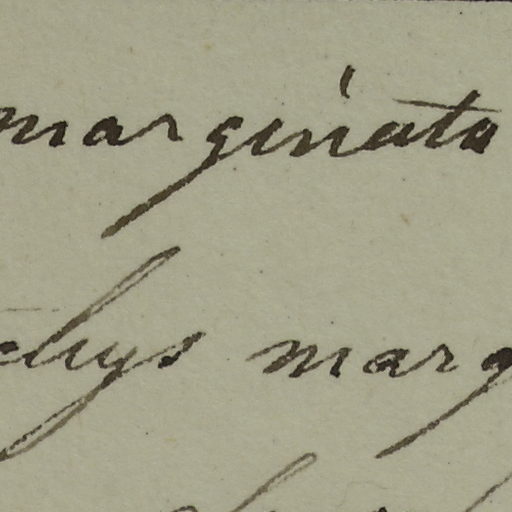 marginata
chys marg